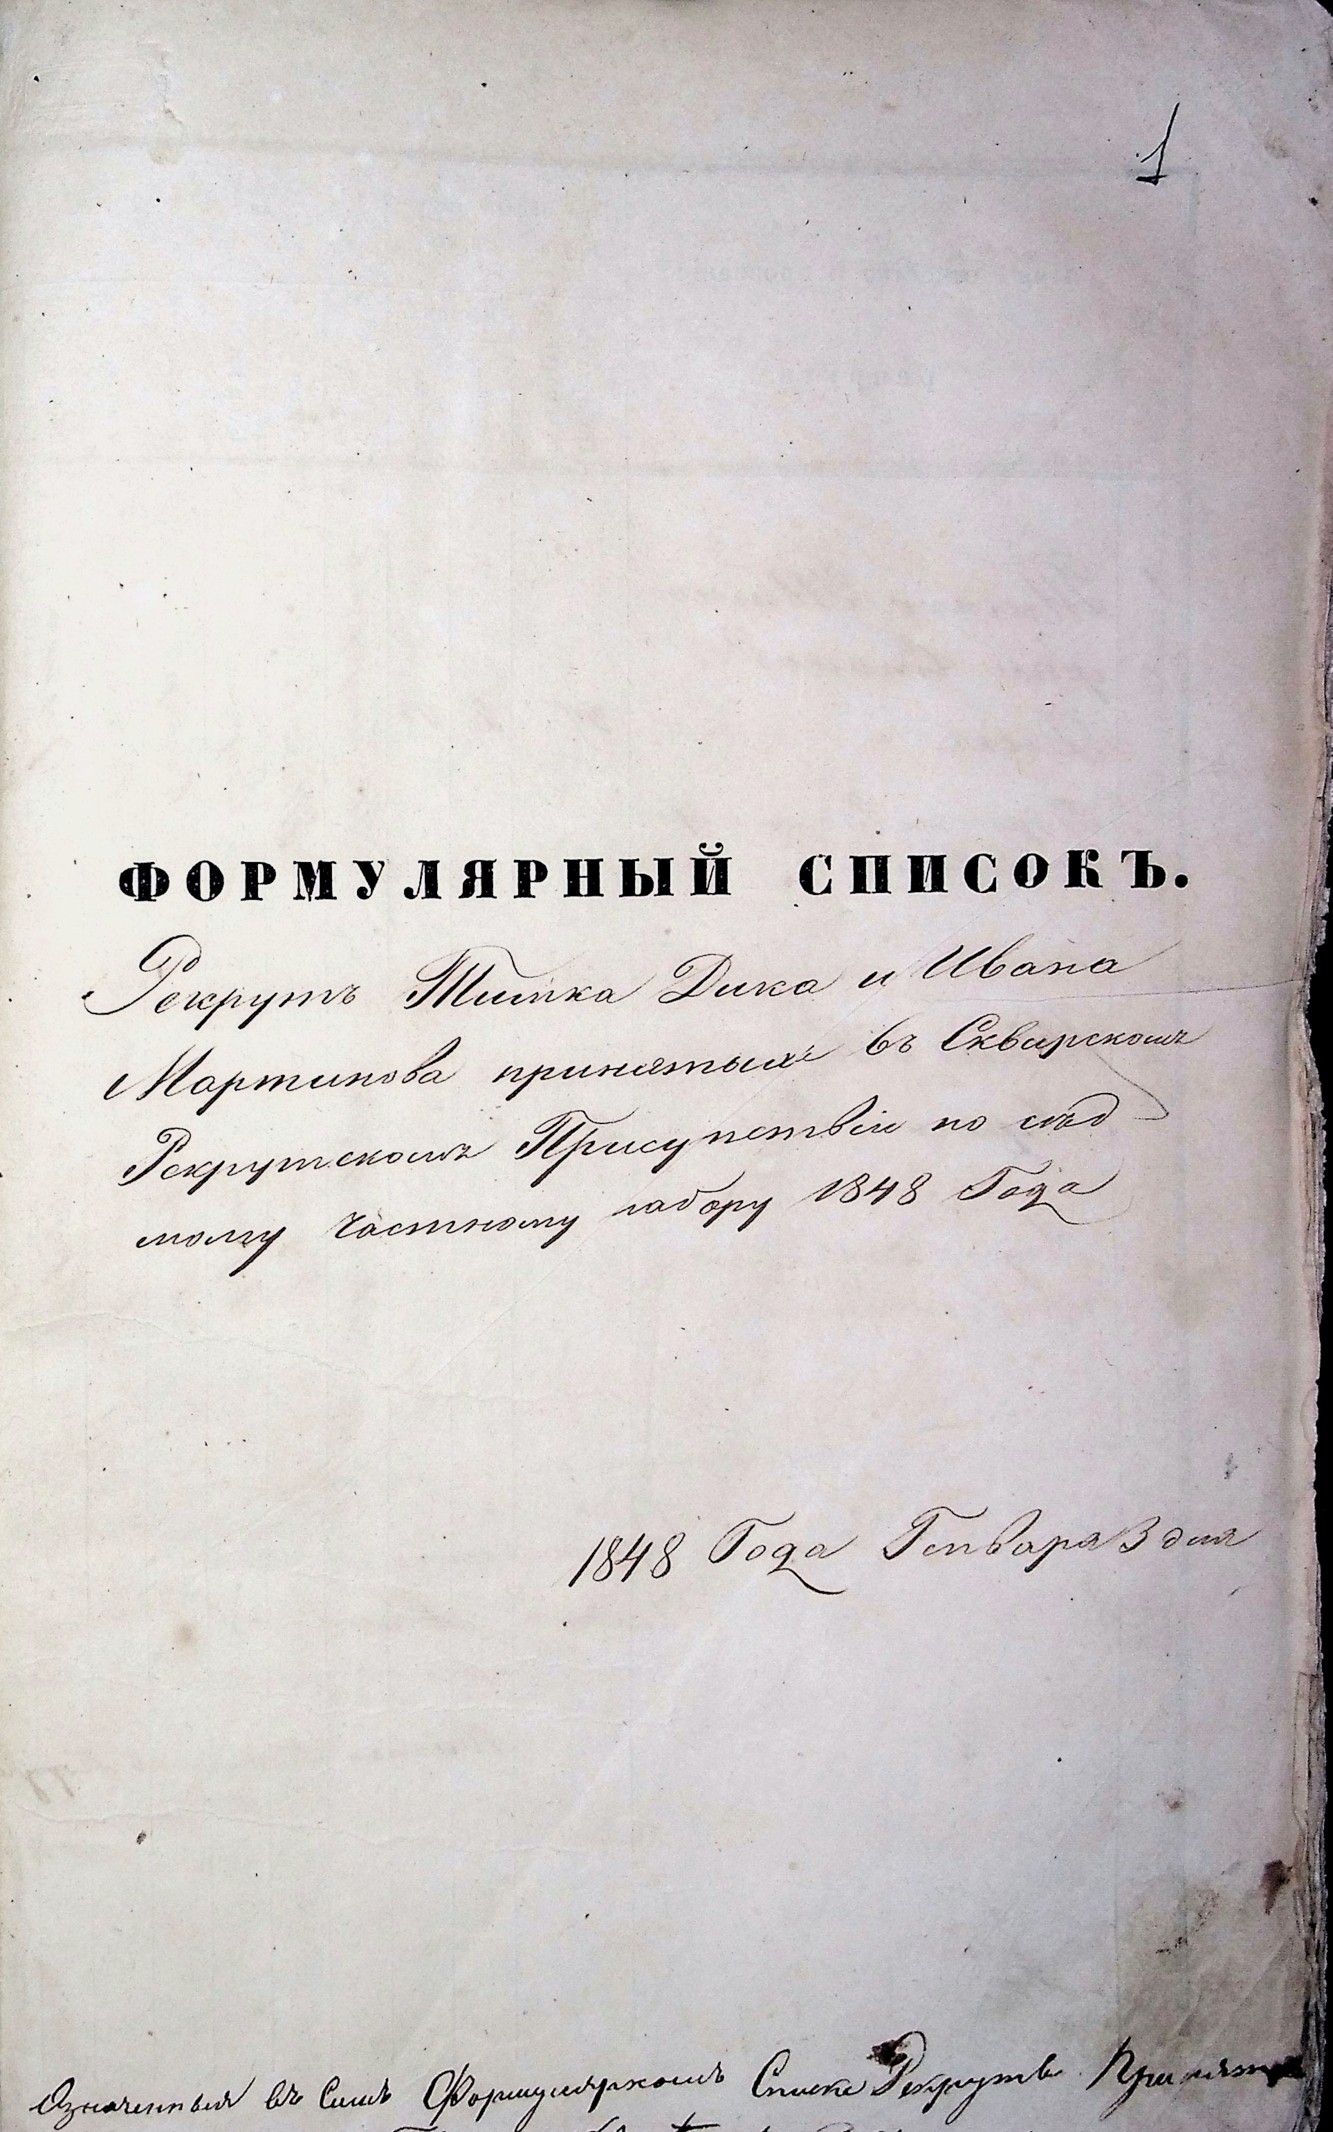 1
ФОРМУЛЯРНЫЙ СПИСОКЪ.
Рекрутъ Тимка Дика и Ивана
Мартинова принятыхъ въ Сквирскомъ
Рекрутскомъ Присутствіи по седь
мому частному набору 1848 Года
1848 Года Генваря 3 дня
Означенныя въ Семъ Формулярномъ Списке Рекруты Принят